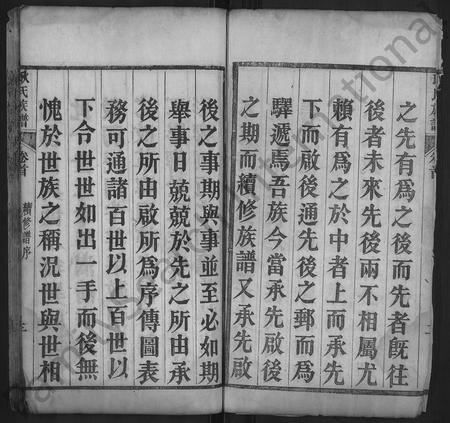 之先有爲之後而先者旣往
後者未來先後兩不相屬尤
賴有爲之於中者上而承先
下而啟後通先後之郵而爲
驛遞馬吾族今當承先啟後
之期而續修族譜又承先啟
後之事期與事並至必如期
舉事日兢兢於先之所由承
後之所由啟所爲序傳圖表
務可通諸百世以上百世以
下合世世如出一手而後無
愧於世族之稱況世與世相
氏族譜
卷首
續修譜序
三